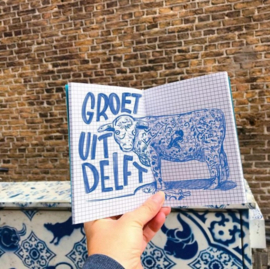 GROET
UIT
DELFT